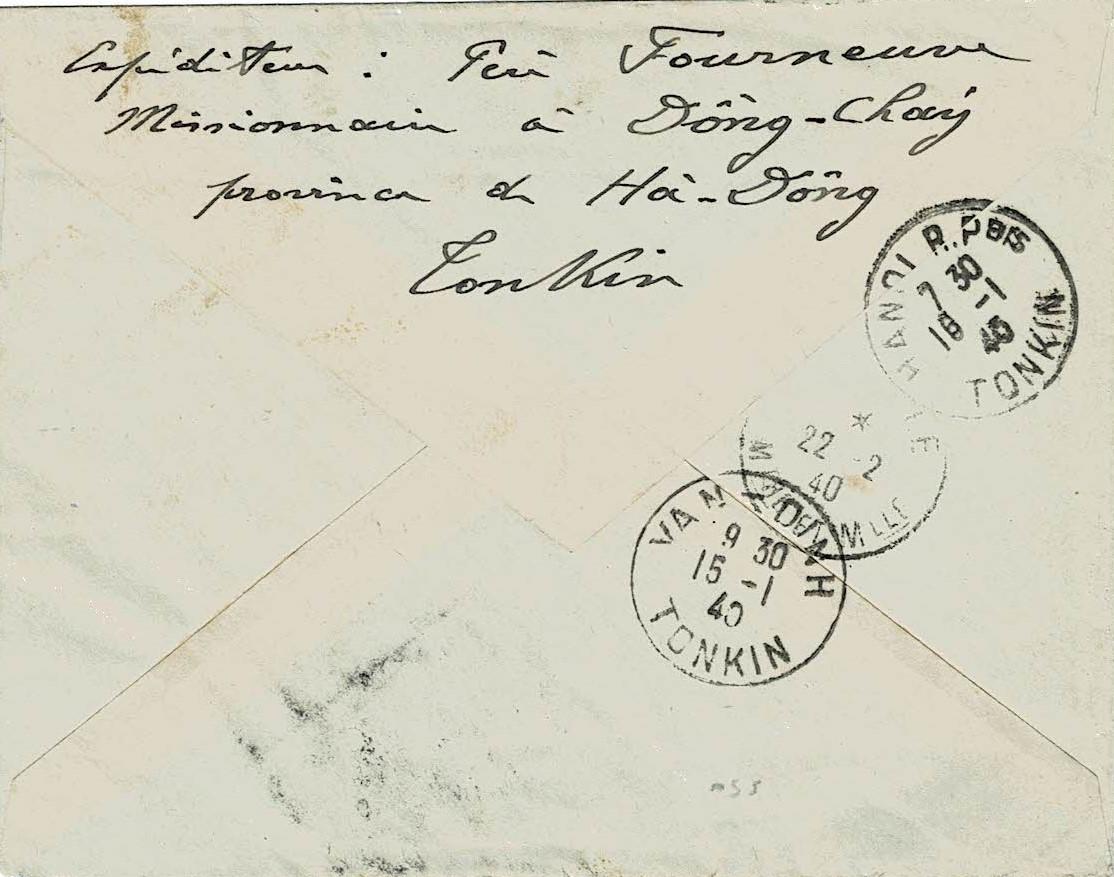 Expéditeur : Père Fourneuve
Missionnaire à Dông-Chaÿ
province de Hà-Dông
Tonkin
HANOI R.P.
7 30
16 -1
40
TONKIN
*
22 -2
40
VAN
9 30
15 -1
40
TONKIN